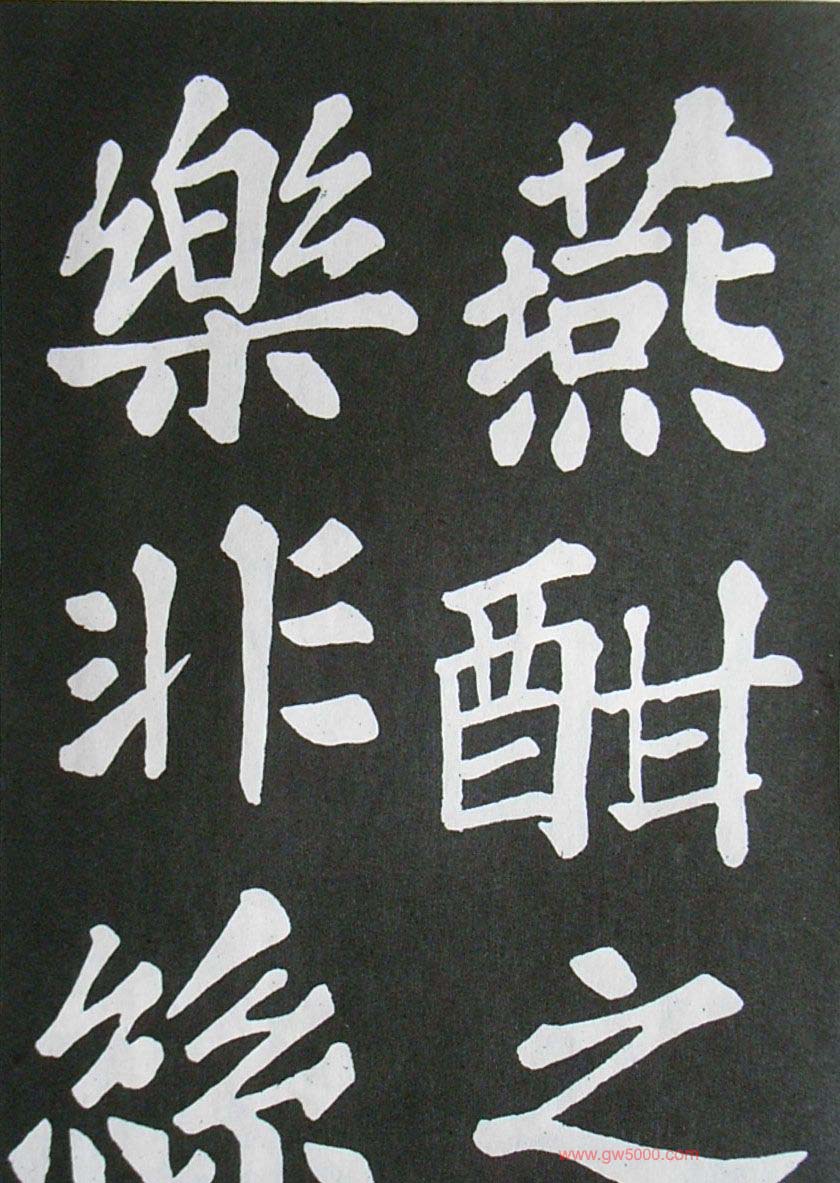 燕酣之
樂非絲
www.gw5000.com